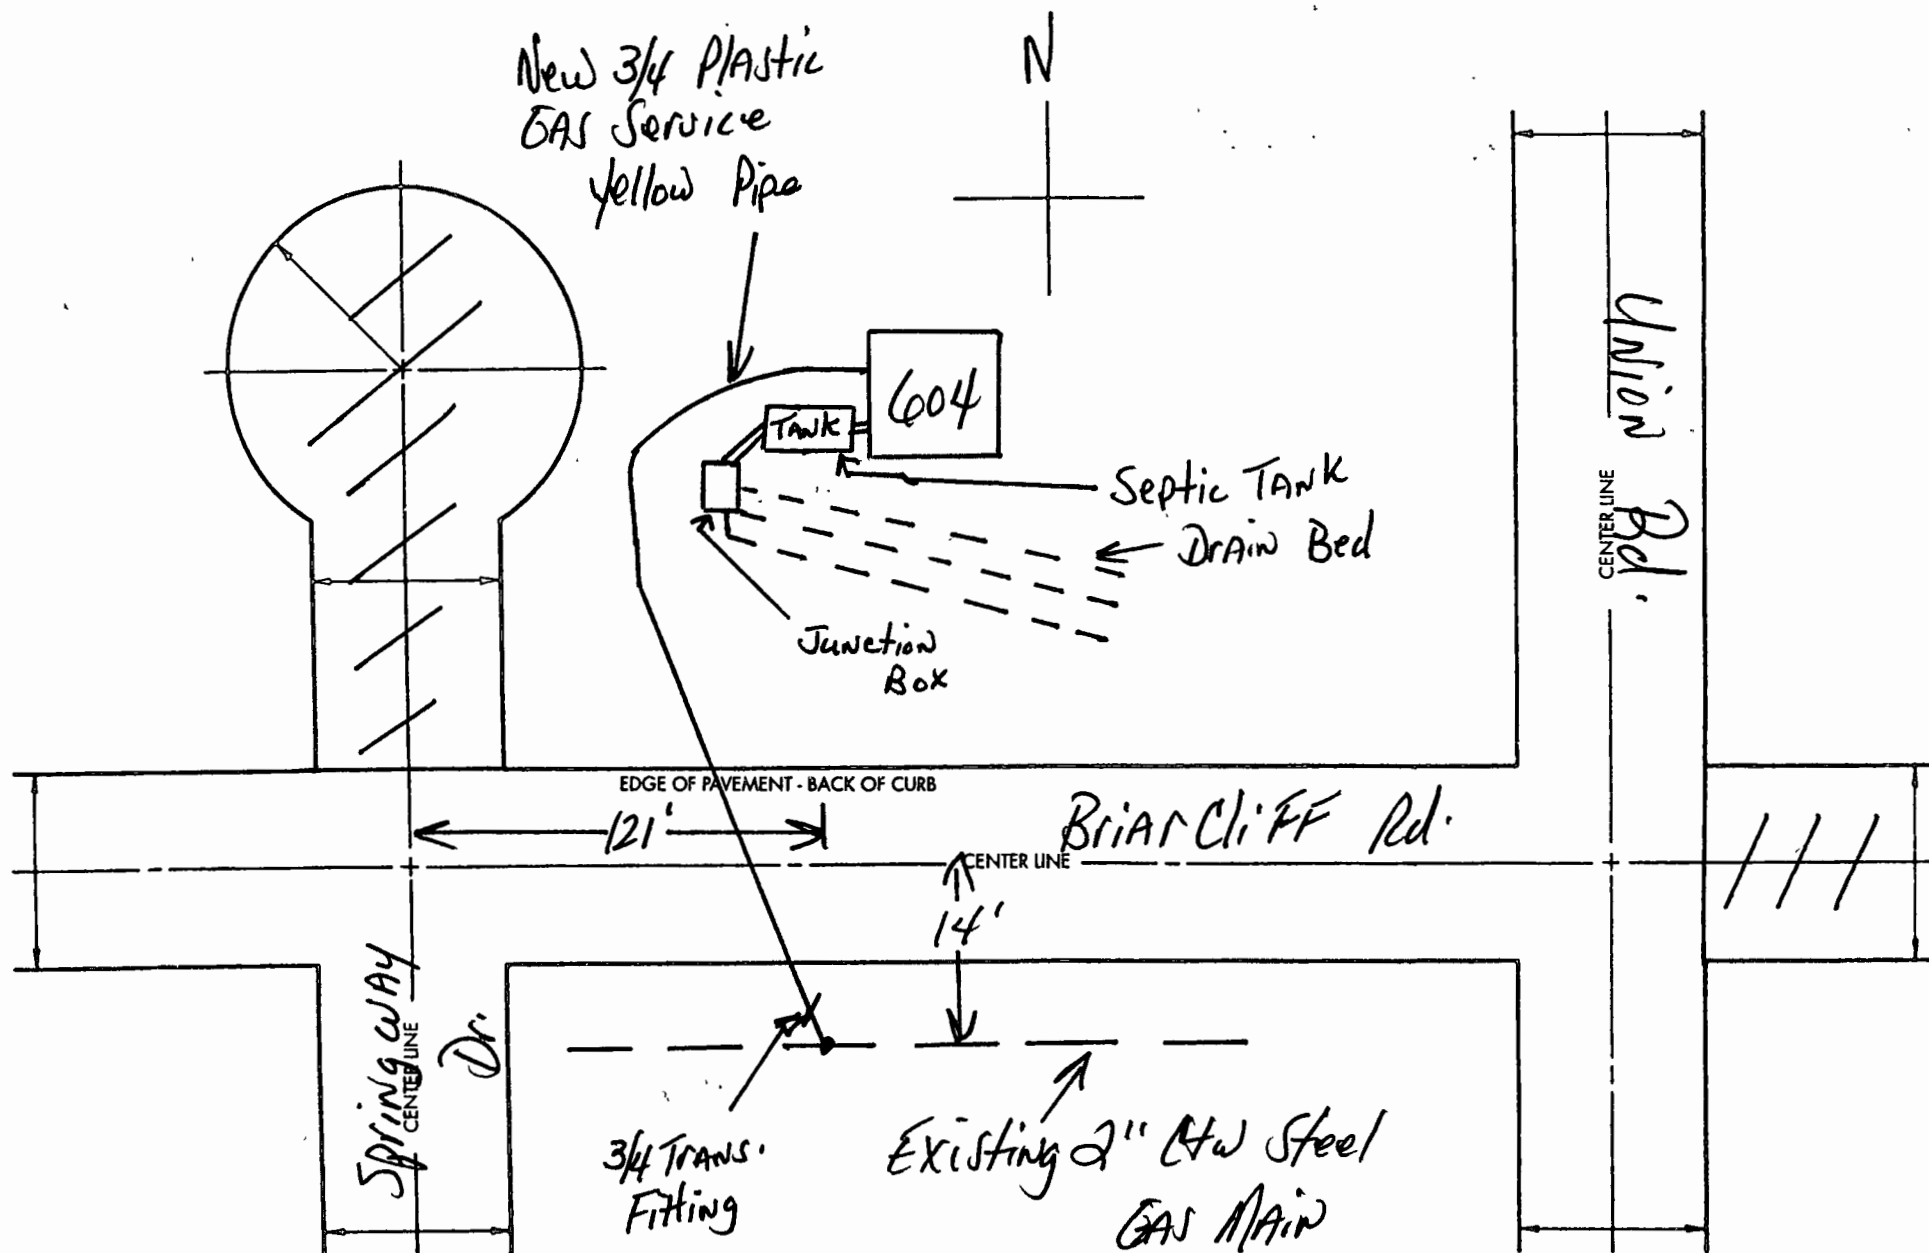 New 3/4 Plastic
GAS Service
Yellow Pipe
N
604
TANK
Septic TANK
Drain Bed
Junction
Box
Union Rd.
CENTER LINE
EDGE OF PAVEMENT - BACK OF CURB
121'
BriarCliff Rd.
CENTER LINE
14'
Spring way
Dr.
CENTER LINE
3/4 Trans.
Fitting
Existing 2" C+W Steel
GAS MAIN